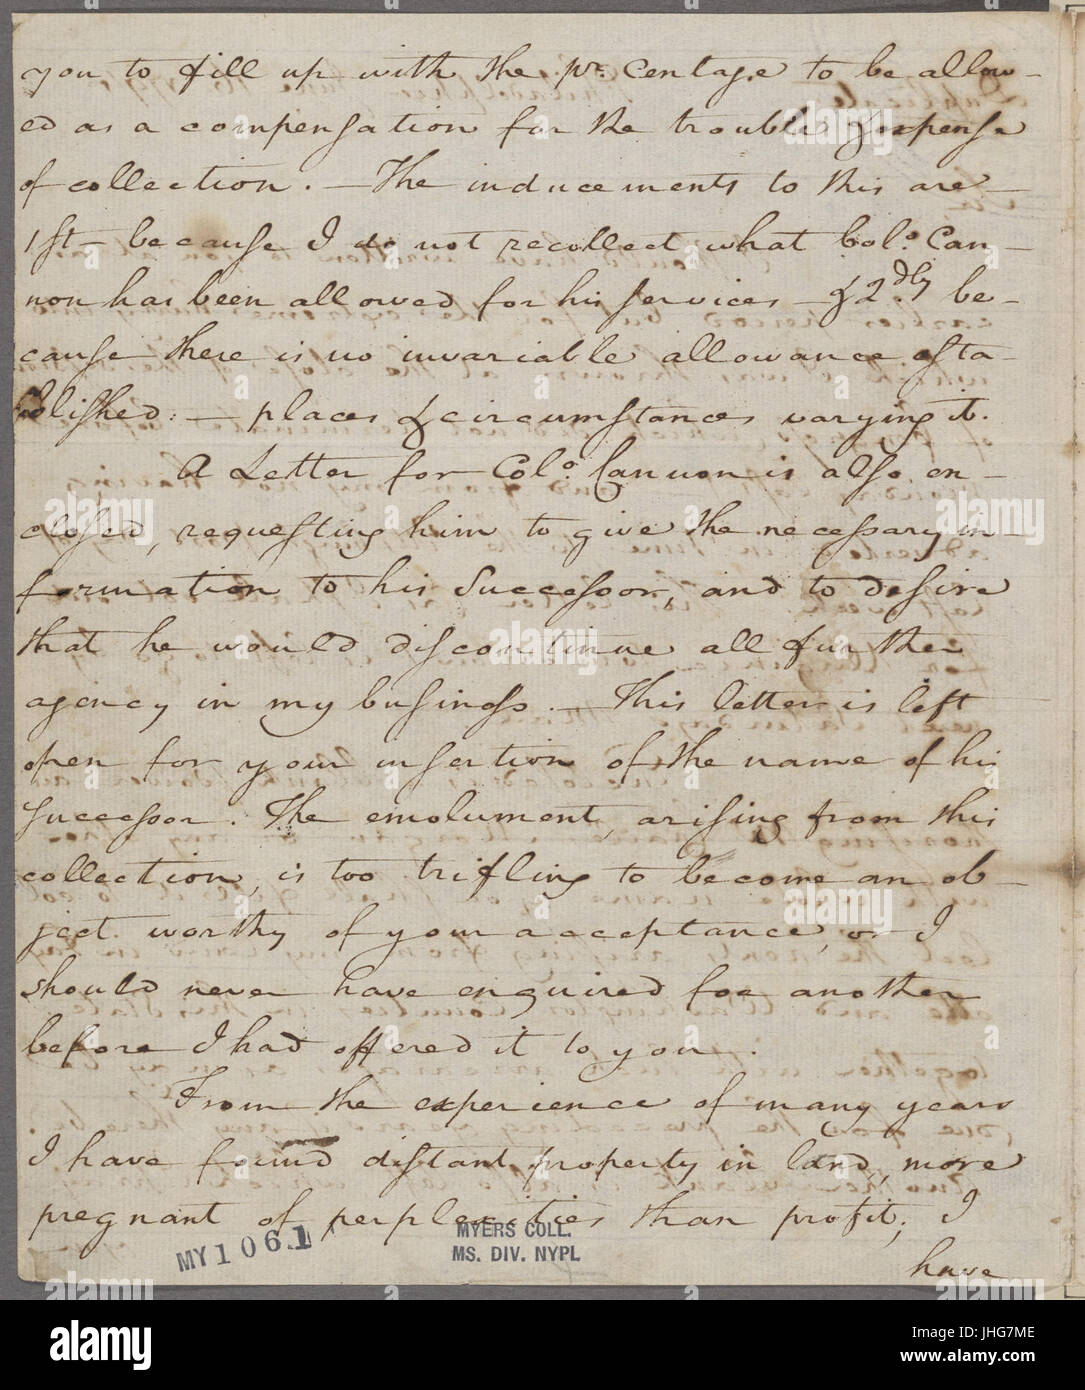 you to fill up with the pr. Centage to be allow-
ed as a compensation for the trouble & expense
of collection. — The inducements to this are —
1st — because I do not recollect what Colo. Can-
non has been allowed for his services — & 2dly be-
cause there is no invariable allowance esta-
blished: — places & circumstances varying it.
A Letter for Colo. Cannon is also en-
closed, requesting him to give the necessary in-
formation to his Successor, and to desire
that he would discontinue all further
agency in my business. — This letter is left
open for your insertion of the name of his
Successor. The emolument, arising from this
collection, is too trifling to become an ob-
ject worthy of your acceptance, or I
should never have enquired for another
before I had offered it to you.
From the experience of many years
I have found distant property in land, more
pregnant of perplexities than profit; I
have
MY 1061
MYERS COLL.
MS. DIV. NYPL
alamy stock photo
JHG7ME
www.alamy.com